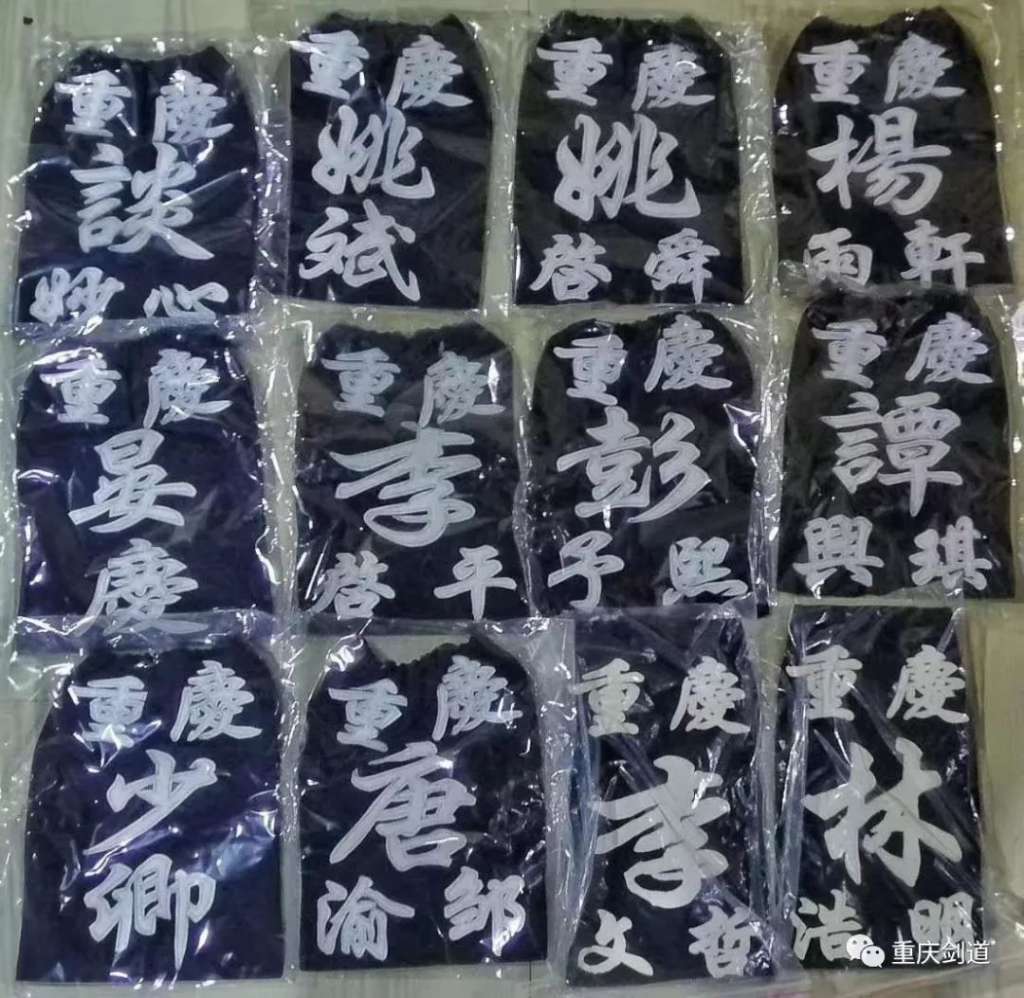 重慶
談
妙心
重慶
姚
斌
重慶
姚
啓舜
重慶
楊
雨軒
重慶
晏
慶
重慶
李
啓平
重慶
彭
予熙
重慶
譚
興琪
重慶
少
卿
重慶
唐
渝邹
重慶
李
文哲
重慶
林
浩明
重庆剑道